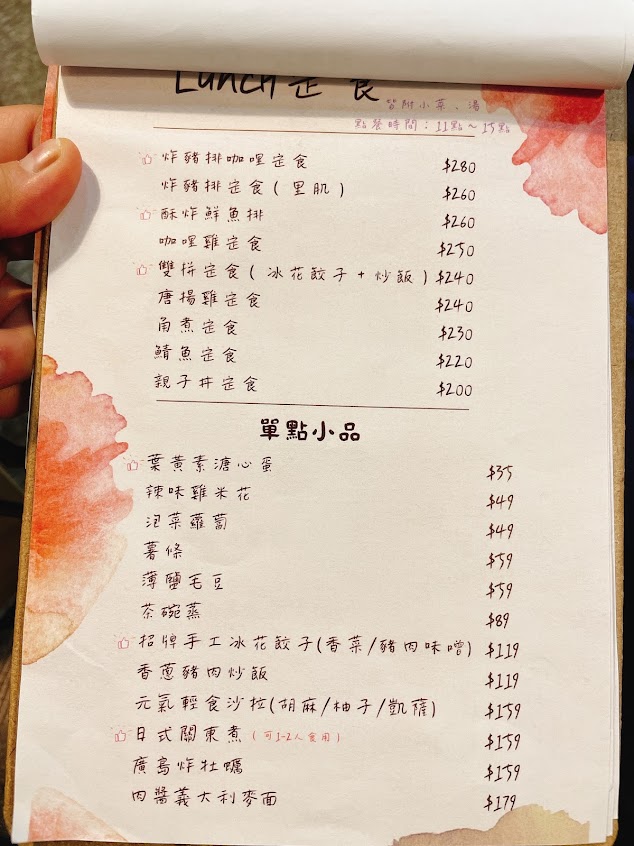 Lunch 定 食
皆附小菜、湯
點餐時間：11點～15點
炸豬排咖哩定食 $280
炸豬排定食(里肌) $260
酥炸鮮魚排 $260
咖哩雞定食 $250
雙拼定食(冰花餃子+炒飯) $240
唐揚雞定食 $240
角煮定食 $230
鯖魚定食 $220
親子丼定食 $200
單點小品
葉黃素溏心蛋 $35
辣味雞米花 $49
泡菜蘿蔔 $49
薯條 $59
薄鹽毛豆 $59
茶碗蒸 $89
招牌手工冰花餃子(香菜/豬肉味噌) $119
香蔥豬肉炒飯 $119
元氣輕食沙拉(胡麻/柚子/凱薩) $159
日式關東煮(可1-2人食用) $159
廣島炸牡蠣 $159
肉醬義大利麥面 $179